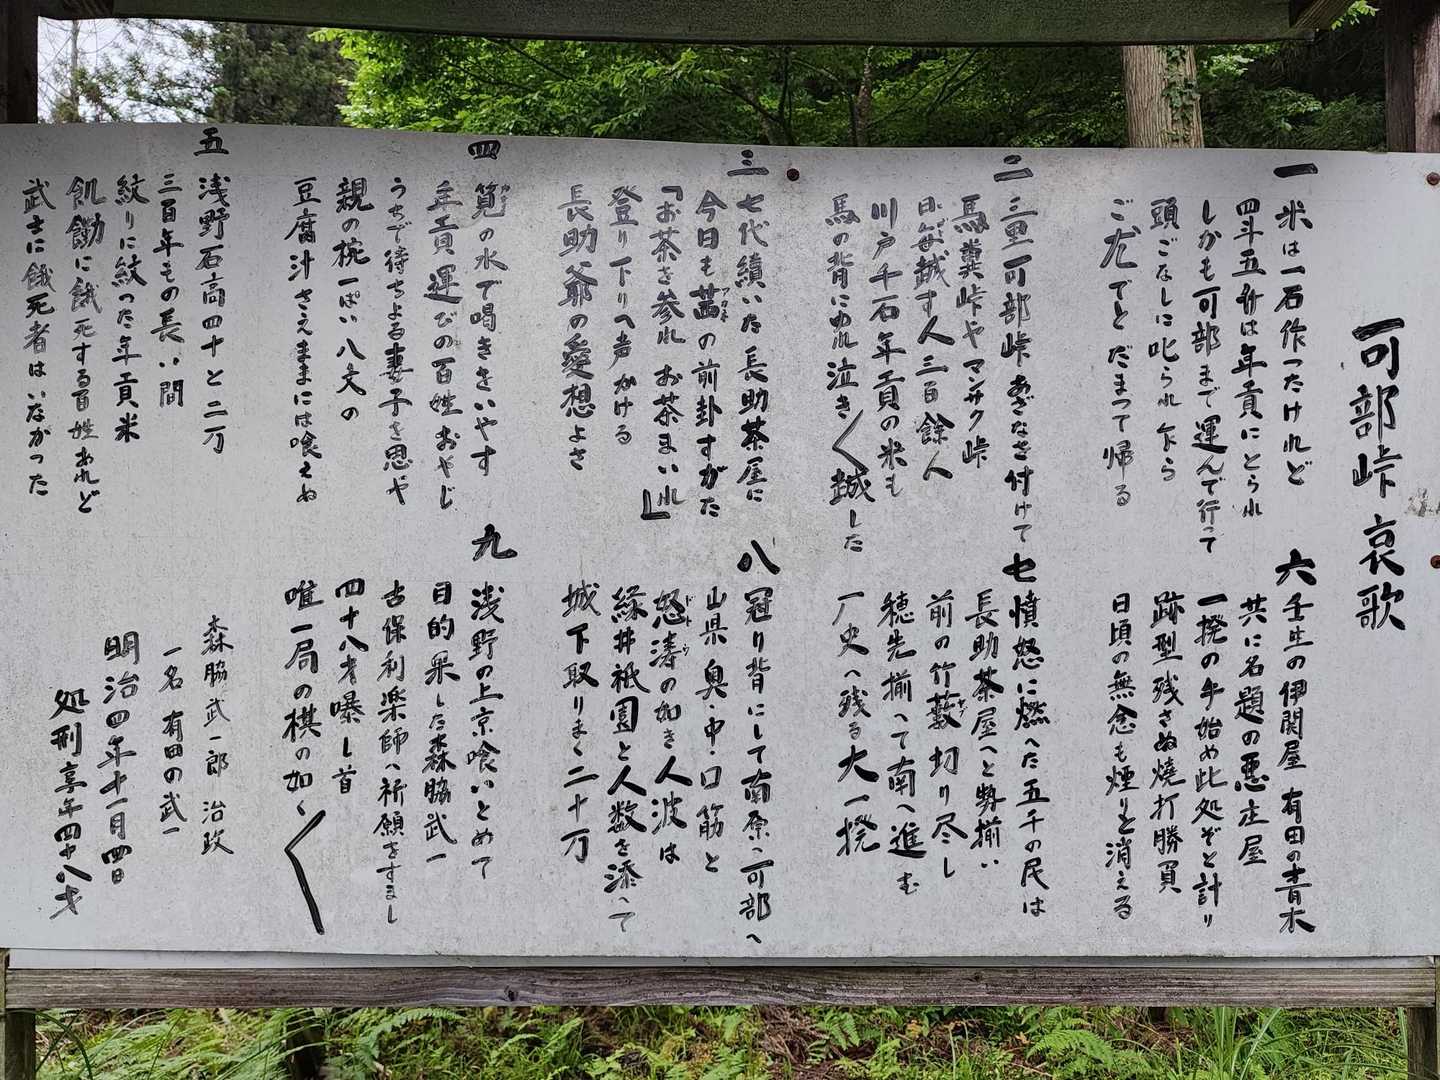 可部峠 哀歌
一 米は一石作ったけれど
四斗五升は年貢にとられ
しかも可部まで運んで行って
頭ごなしに叱られ乍ら
ご尤でとだまって帰る
二 三里可部峠あざなを付けて
馬糞峠やマンサク峠
日毎越す人三百餘人
川戸千石年貢の米も
馬の背にゆれ泣き〱越した
三 七代續いた長助茶屋に
今日も茜の前卦すがた
アカネ
「お茶を参れ お茶まいれ」
登り下りへ声かける
長助爺の愛想よさ
四 筧の水で喝きをいやす
年貢運びの百姓おやじ
うちで待ちよる妻子を思や
親の椀一ぱい八文の
豆腐汁さえままには喰えぬ
五 浅野石高四十と二万
三百年その長い間
絞りに絞った年貢米
飢饉に餓死する百姓あれど
武士に餓死者はいなかった
六 壬生の伊関屋 有田の青木
共に名題の悪庄屋
一揆の手始め此処ぞと計り
跡型残さぬ燒打勝負
日頃の無念も煙りと消える
七 憤怒に燃へた五千の民は
長助茶屋へと勢揃い
前の竹藪切り尽し
ヤブ
穂先揃へて南へ進む
一厂史へ残る大一揆
八 冠り背にして南原へ可部へ
山県奥・中・口筋と
怒濤の如き人波は
ドトウ
緑井祇園と人数を添へて
城下取りまく二十万
九 浅野の上京喰いとめて
目的果した森脇武一
古保利薬師へ祈願をすまし
四十八才曝し首
唯一局の棋の如く
森脇武一郎 治政
一名 有田の武一
明治四年十一月四日
処刑享年四十八才